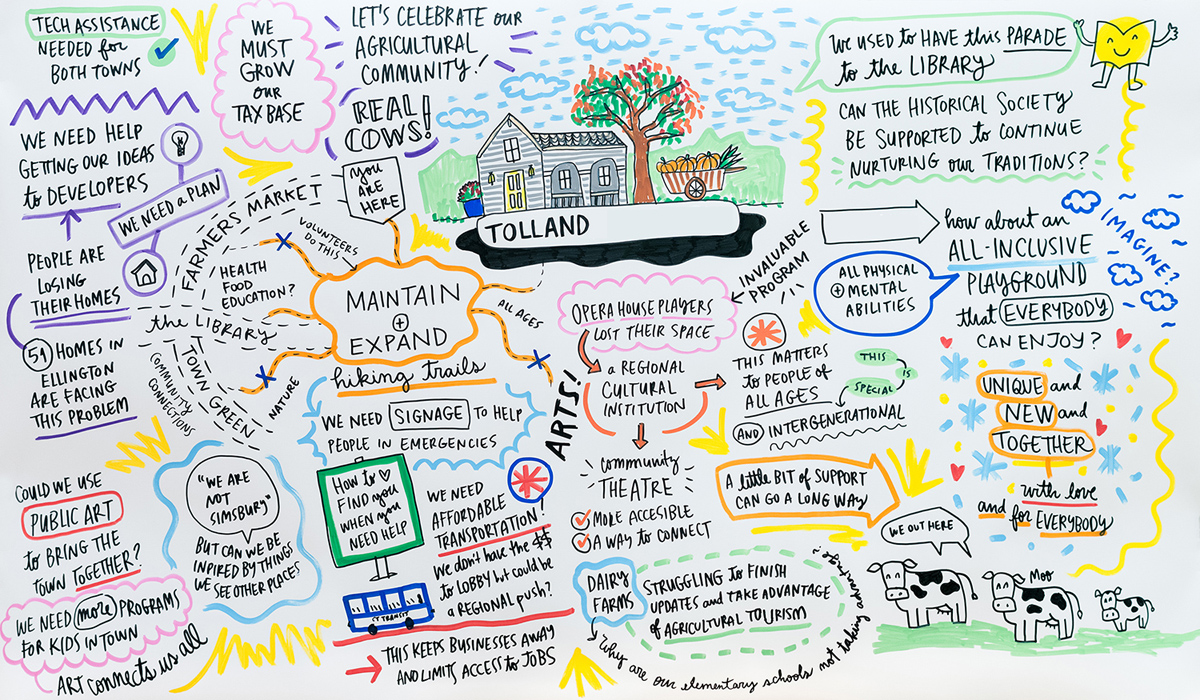 TECH ASSISTANCE
NEEDED for
BOTH TOWNS
WE
MUST
GROW
OUR
TAX BASE
LET'S CELEBRATE OUR
AGRICULTURAL
COMMUNITY!
REAL
COWS!
YOU
ARE
HERE
TOLLAND
WE USED to HAVE this PARADE
to the LIBRARY
CAN THE HISTORICAL SOCIETY
BE SUPPORTED to CONTINUE
NURTURING OUR TRADITIONS?
WE NEED HELP
GETTING OUR IDEAS
to DEVELOPERS
WE NEED a PLAN
PEOPLE ARE
LOSING
THEIR HOMES
51 HOMES IN
ELLINGTON
ARE FACING
THIS PROBLEM
FARMERS MARKET
the LIBRARY
TOWN GREEN
COMMUNITY
CONNECTIONS
HEALTH
FOOD
EDUCATION?
VOLUNTEERS
DO THIS
MAINTAIN
+
EXPAND
hiking trails
NATURE
ALL AGES
WE NEED SIGNAGE TO HELP
PEOPLE IN EMERGENCIES
HOW to
FIND you
WHEN you
NEED HELP
ARTS!
OPERA HOUSE PLAYERS
LOST THEIR SPACE
INVALUABLE
PROGRAM
a REGIONAL
CULTURAL
INSTITUTION
THIS MATTERS
to PEOPLE of
ALL AGES
AND INTERGENERATIONAL
THIS
IS
SPECIAL
COMMUNITY
THEATRE
MORE ACCESIBLE
A WAY to CONNECT
how about an
ALL-INCLUSIVE
PLAYGROUND
that EVERYBODY
CAN ENJOY?
IMAGINE?
ALL PHYSICAL
+ MENTAL
ABILITIES
UNIQUE and
NEW and
TOGETHER
with love
and for EVERYBODY
A little BIT of SUPPORT
CAN GO A LONG WAY
COULD WE USE
PUBLIC ART
to BRING THE
TOWN TOGETHER?
WE NEED more PROGRAMS
FOR KIDS IN TOWN
ART CONNECTS US all
"WE ARE
NOT
SIMSBURY"
BUT CAN WE BE
INPIRED BY THINGS
WE SEE OTHER PLACES
WE NEED
AFFORDABLE
TRANSPORTATION!
WE DON'T HAVE the $$
to LOBBY but COULD BE
a REGIONAL PUSH?
CT TRANSIT
THIS KEEPS BUSINESSES AWAY
AND LIMITS ACCESS to JOBS
DAIRY
FARMS
STRUGGLING to FINISH
UPDATES and TAKE ADVANTAGE
of AGRICULTURAL TOURISM
Why are our elementary schools not taking advantage?
WE OUT HERE
Moo